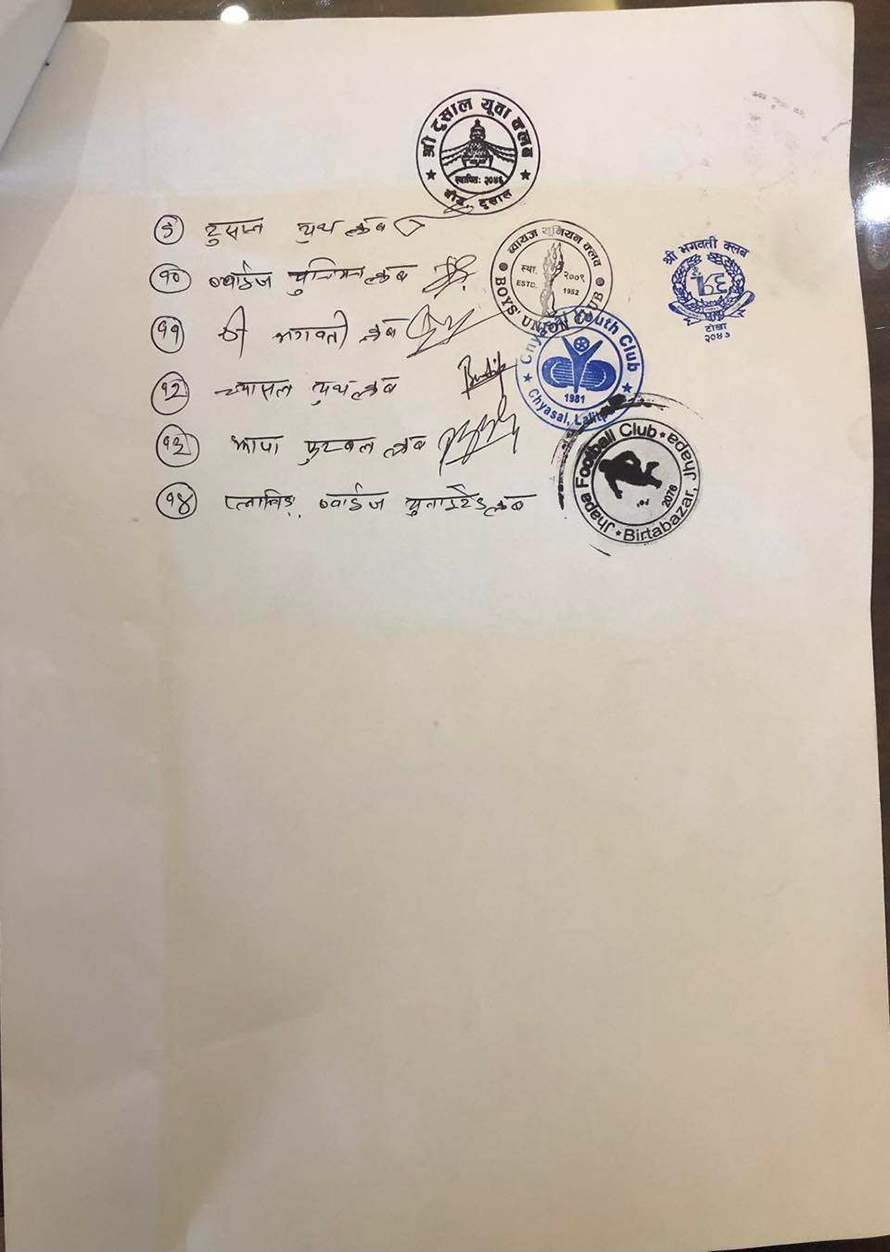 श्री टुसाल युवा क्लब
स्थापित: २०४६
बौद्ध, टुसाल
९ टुसाल युथ क्लब
१० ब्वाईज युनियन क्लब
ब्वायज यूनियन क्लव
स्था. २००९
ESTD. 1952
BOYS' UNION CLUB
श्री भगवती क्लब
टोखा
२०४७
११ श्री भगवती क्लब
Chyasal Youth Club
1981
Chyasal, Lalitpur
१२ च्यासल युथ क्लब
१३ झापा फुटबल क्लब
Jhapa Football Club
2076
Birtabazar, Jhapa
१४ ब्वाईज युनाईटेड क्लब